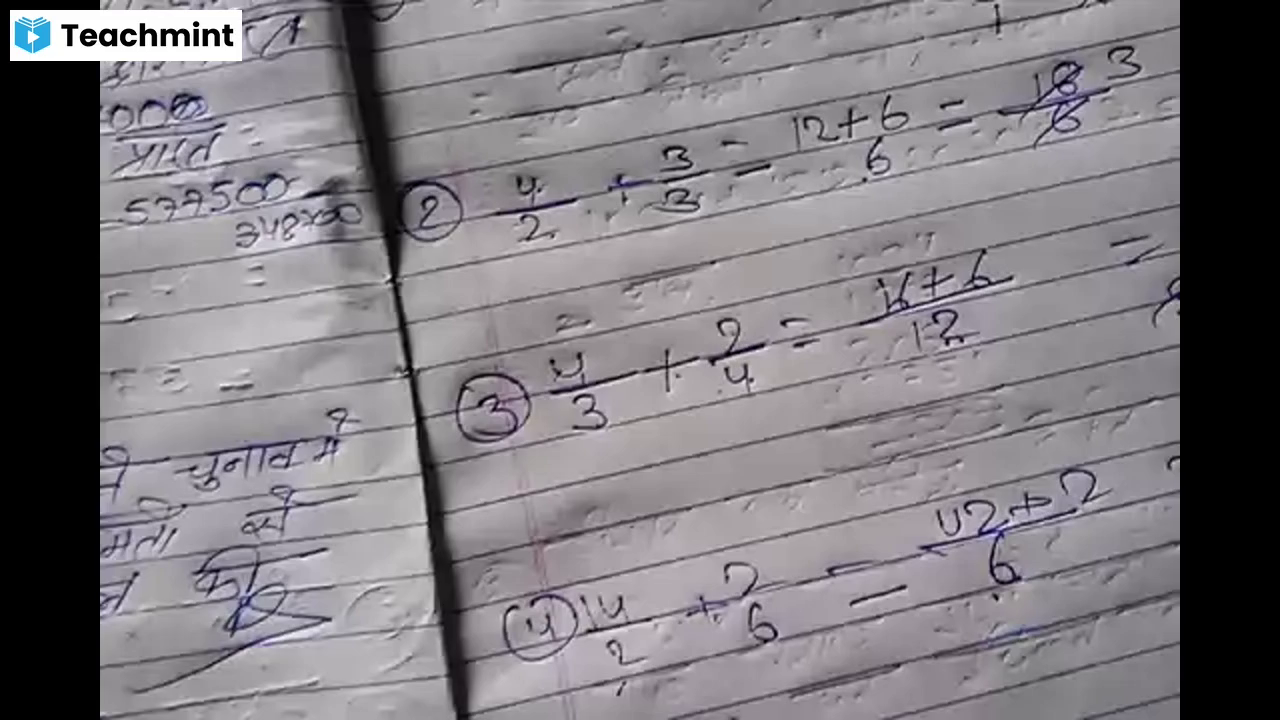 Teachmint
000
प्राप्त
577500
348700
चुनाव में
मतो से
की
② 4/2 + 3/3 = 12+6/6 = 18/6 3
③ 4/3 + 2/4 = 16+6/12 =
④ 14/2 + 2/6 = 42+2/6